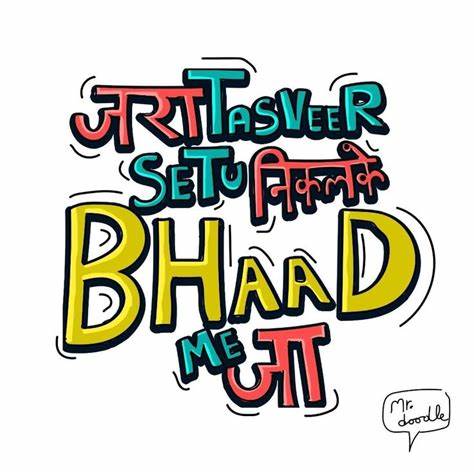 जरा TASVEER
SE TU निकलके
BHAAD
ME जा
Mr.
doodle